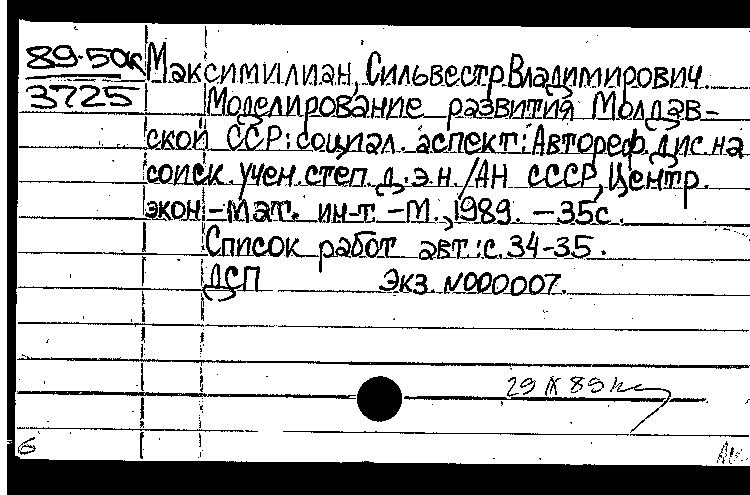 89-50к Максимилиан, Сильвестр Владимирович.
3725 Моделирование развития Молдав-
ской ССР: социал. аспект: Автореф. дис. на
соиск. учен. степ. д.э.н. /АН СССР, Центр.
экон-мат. ин-т. -М., 1989. -35с.
Список работ авт.: с. 34-35.
ДСП Экз. N000007.
29 IX 89
6